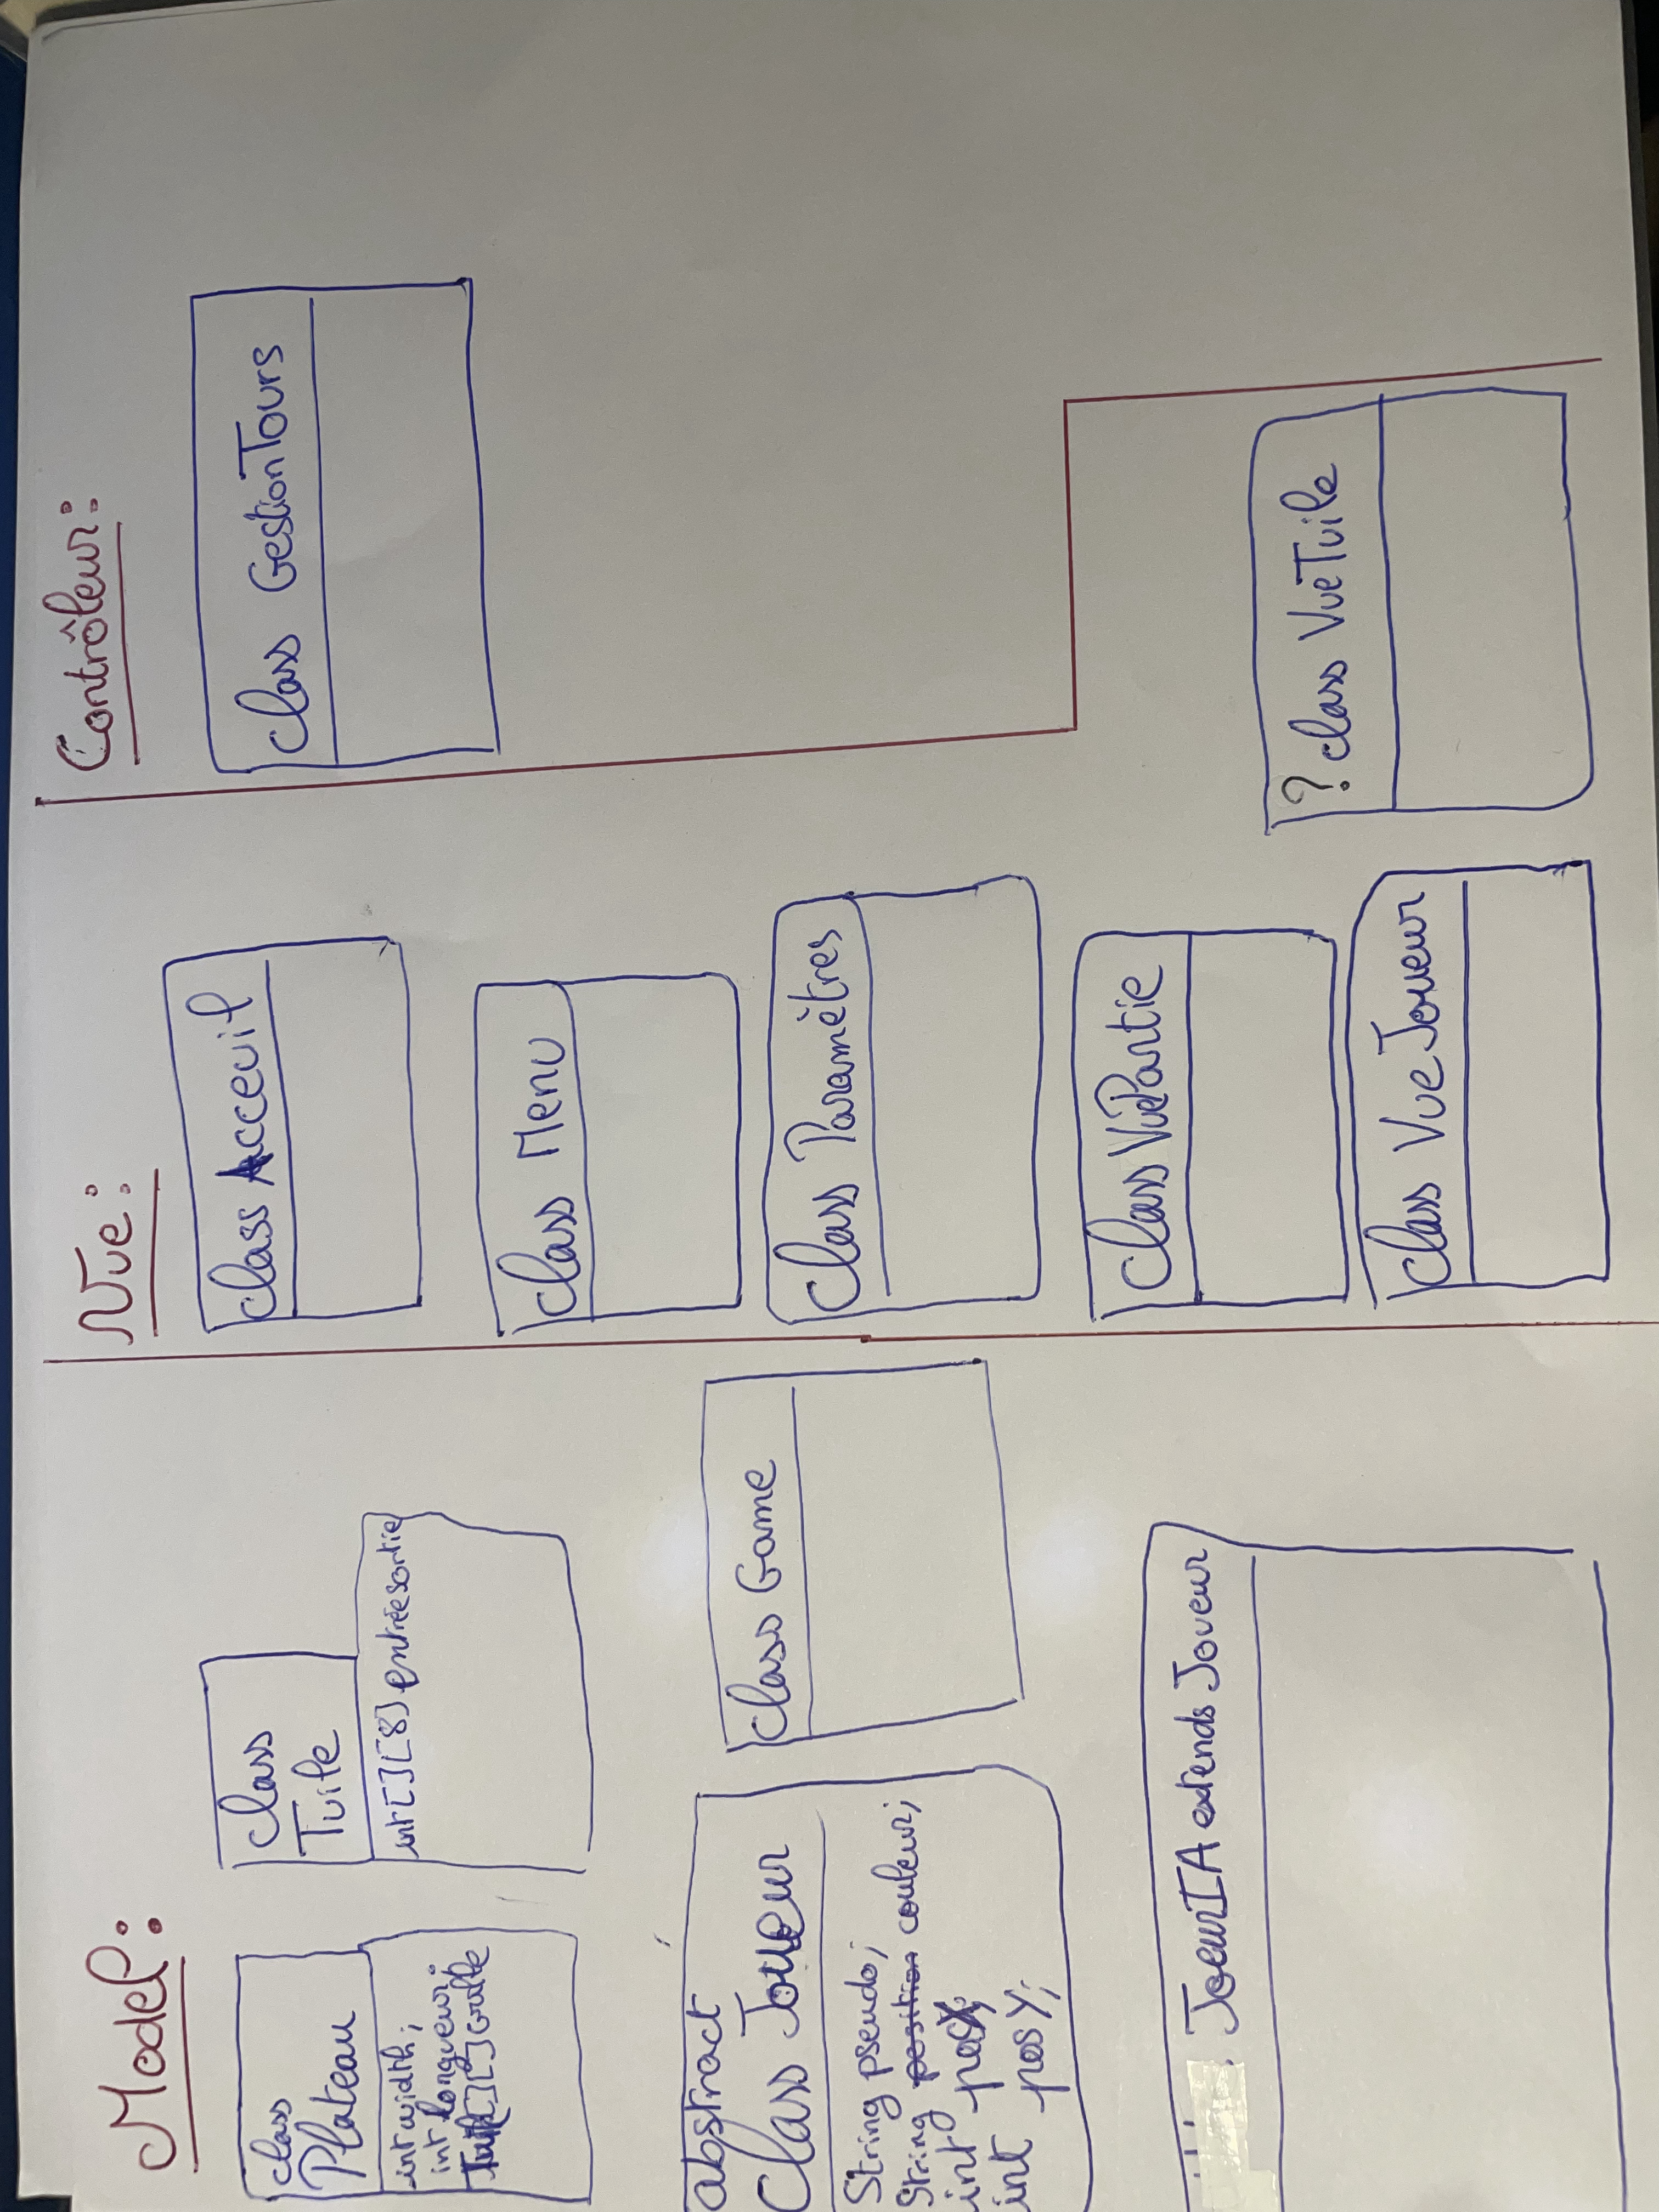 Model:
class
Plateau
int width;
int longueur;
Tuile[][] Grille
class
Tuile
int[][8] entréesortie
abstract
class Joueur
String pseudo;
String couleur;
int posX;
int posY;
class Game
JoeurIA extends Joueur
Vue:
class Acceuil
class Menu
class Paramètres
class VuePartie
class VueJoueur
? class VueTuile
Contrôleur:
class GestionTours